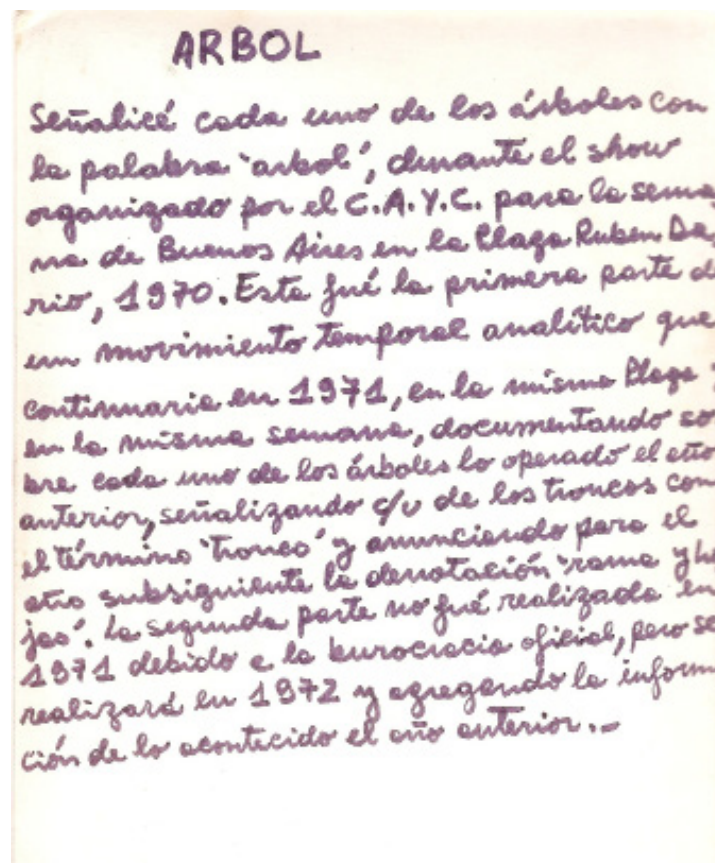 ARBOL
Señalicé cada uno de los árboles con
la palabra "arbol", durante el show
organizado por el C.A.Y.C. para la sema
na de Buenos Aires en la Plaza Ruben Da
rio, 1970. Esta fué la primera parte d
un movimiento temporal analítico que
continuaria en 1971, en la misma Plaza
en la misma semana, documentando so
bre cada uno de los árboles lo operado el año
anterior, señalizando c/u de los troncos con
el término "tronco" y anunciando para el
año subsiguiente la denotación "rama y h
jas". La segunda parte no fué realizada en
1971 debido a la burocracia oficial, pero se
realizará en 1972 y agregando la inform
ción de lo acontecido el año anterior.-